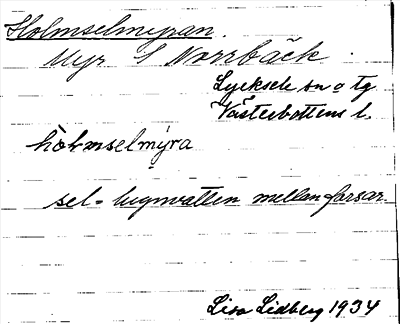 Holmselmyran.
Myr S Norrbäck.
Lycksele sn o tg
Västerbottens l.
hòlmselmýra
sel = lugnvatten mellan forsar.
Lisa Lidberg 1934